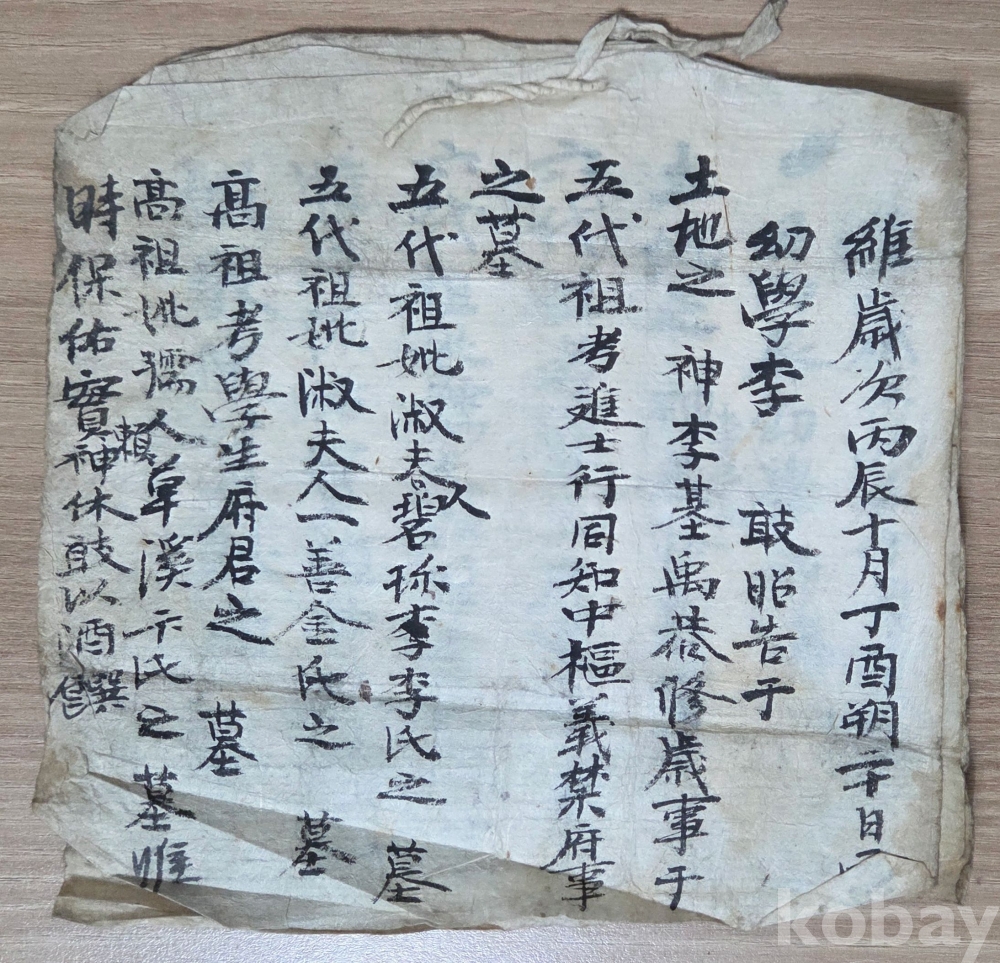 維歲次丙辰十月丁酉朔二十日
幼學李 敢昭告于
土地之 神李基禹恭修歲事于
五代祖考進士行同知中樞義禁府事
之墓
五代祖妣淑夫人碧珎李李氏之 墓
五代祖妣淑夫人一善金氏之 墓
高祖考學生府君之 墓
高祖妣孺人草溪卞氏之 墓惟
時保佑實賴神休敢以酒饌
kobay